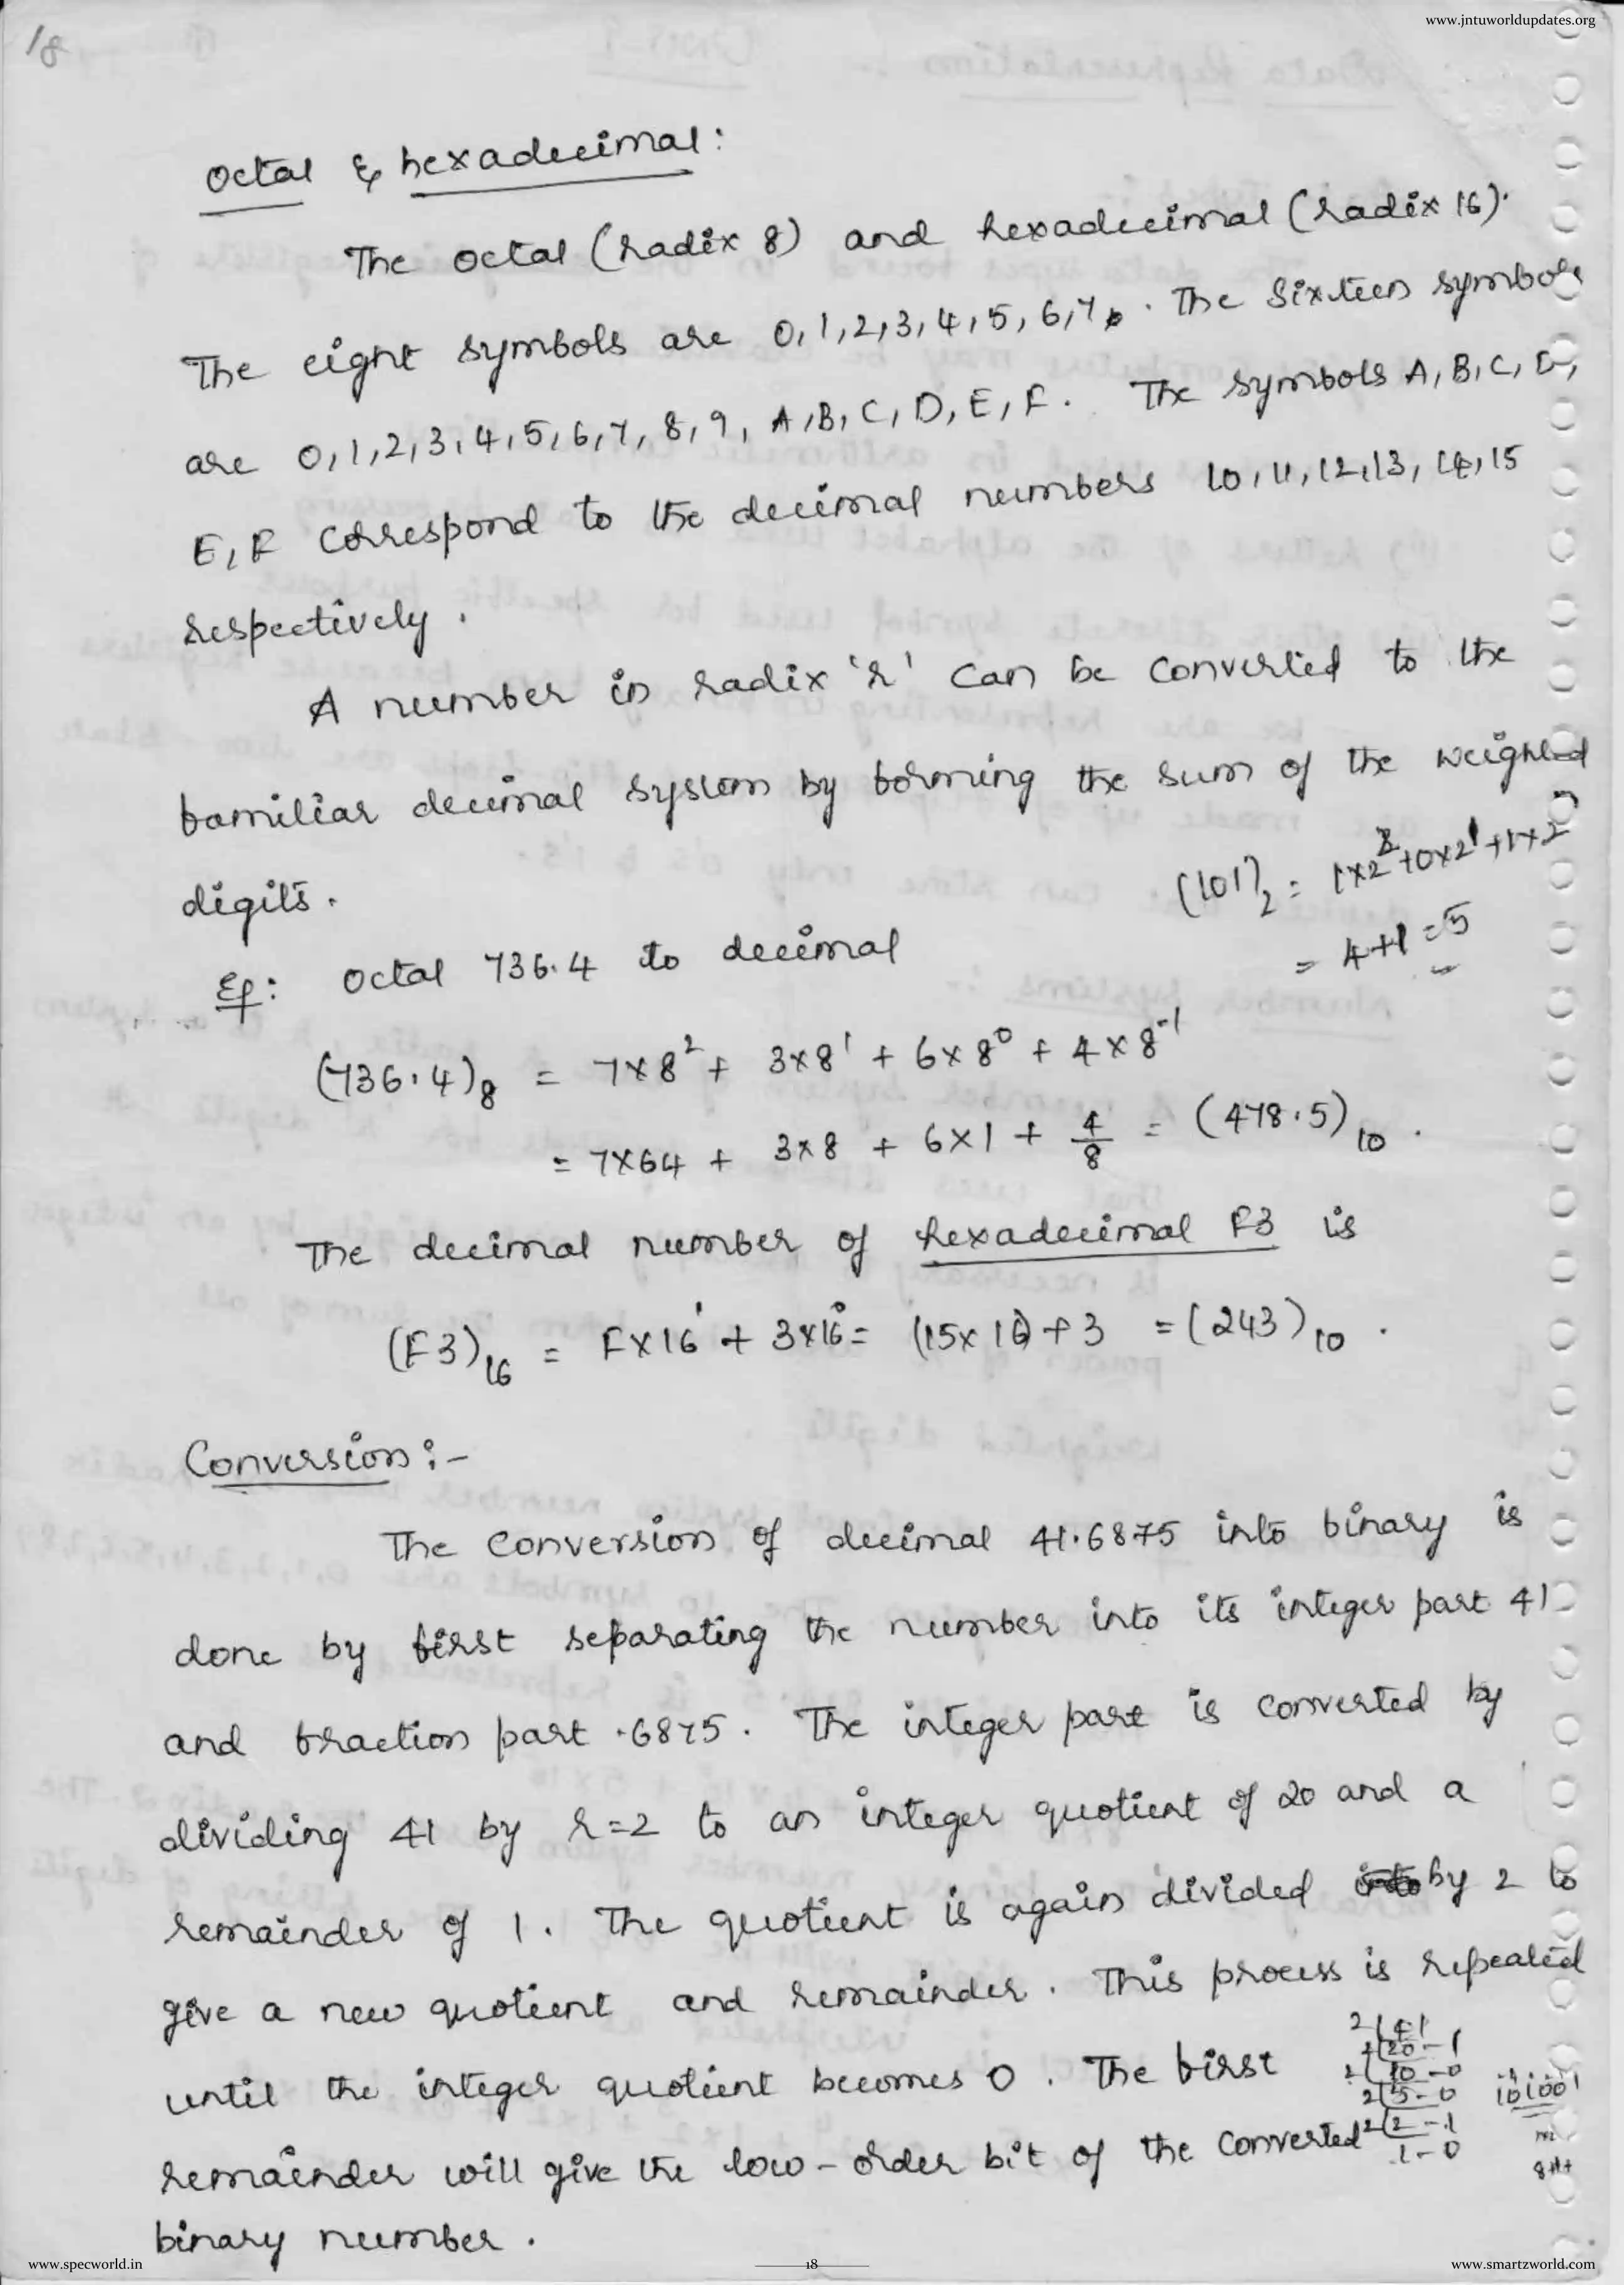 www.jntuworldupdates.org
18
Octal & hexadecimal:
The octal (radix 8) and hexadecimal (radix 16).
The eight symbols are 0,1,2,3,4,5,6,7. The sixteen symbols
are 0,1,2,3,4,5,6,7,8,9,A,B,C,D,E,F. The symbols A,B,C,D,
E,F correspond to the decimal numbers 10,11,12,13,14,15
respectively.
A number in radix 'r' can be converted to the
familiar decimal system by forming the sum of the weighted
digits.
(101)₂ = 1×2² + 0×2¹ + 1×2⁰
= 4+1 = 5
Eg: Octal 736.4 to decimal
(736.4)₈ = 7×8² + 3×8¹ + 6×8⁰ + 4×8⁻¹
= 7×64 + 3×8 + 6×1 + 4/8 = (478.5)₁₀.
The decimal number of hexadecimal F3 is
(F3)₁₆ = F×16¹ + 3×16⁰ = (15×16)+3 = (243)₁₀.
Conversion:-
The conversion of decimal 41.6875 into binary is
done by first separating the number into its integer part 41
and fraction part .6875. The integer part is converted by
dividing 41 by r=2 to an integer quotient of 20 and a
remainder of 1. The quotient is again divided by 2 to
give a new quotient and remainder. This process is repeated
until the integer quotient becomes 0. The first
remainder will give the low-order bit of the converted
binary number.
2|41
2|20-1
2|10-0
2|5-0
2|2-1
1-0
101001
www.specworld.in
18
www.smartzworld.com